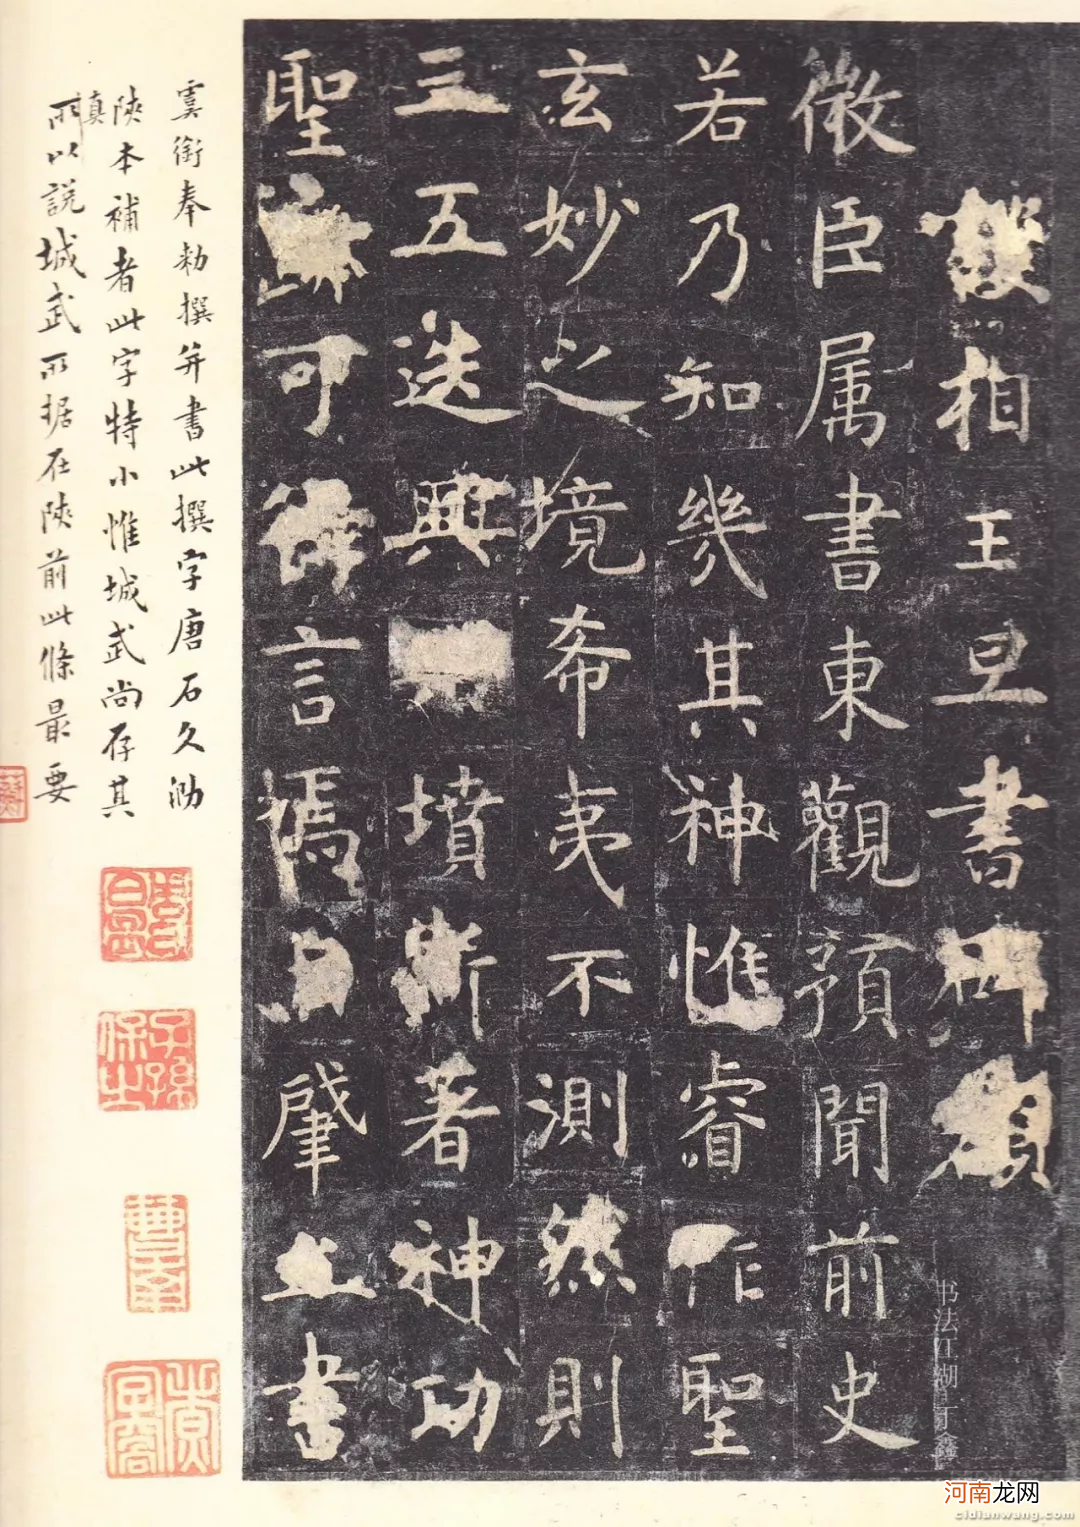 護相王旦書碑額
微臣属書東觀預聞前史
若乃知幾其神惟睿作聖
玄妙之境希夷不測然則
三五迭興墳斯著神功
聖可得言焉自肇立書
虞銜奉勅撰并書此撰字唐石久泐
陝本補者此字特小惟城武尚存其
真
所以說城武所据在陝前此條最要
子孫保之
书法江湖 丁鑫
河南龙网
cidianwang.com